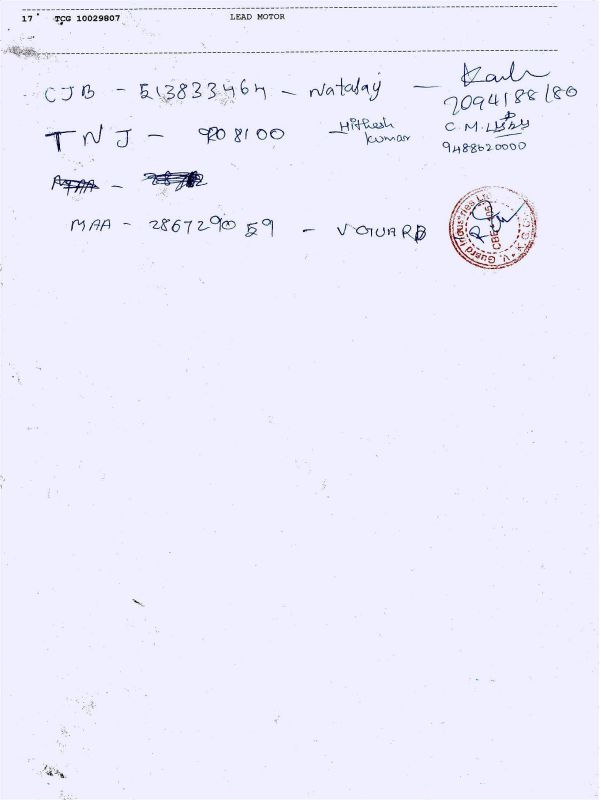 17 TCG 10029807 LEAD MOTOR
CJB - 513833464 - Nataraj -
7094188180
TNJ - 908100 - Hithesh Kumar C.M.
9488620000
MAA - 286729059 - VGUARD
V. Guard Industries Ltd